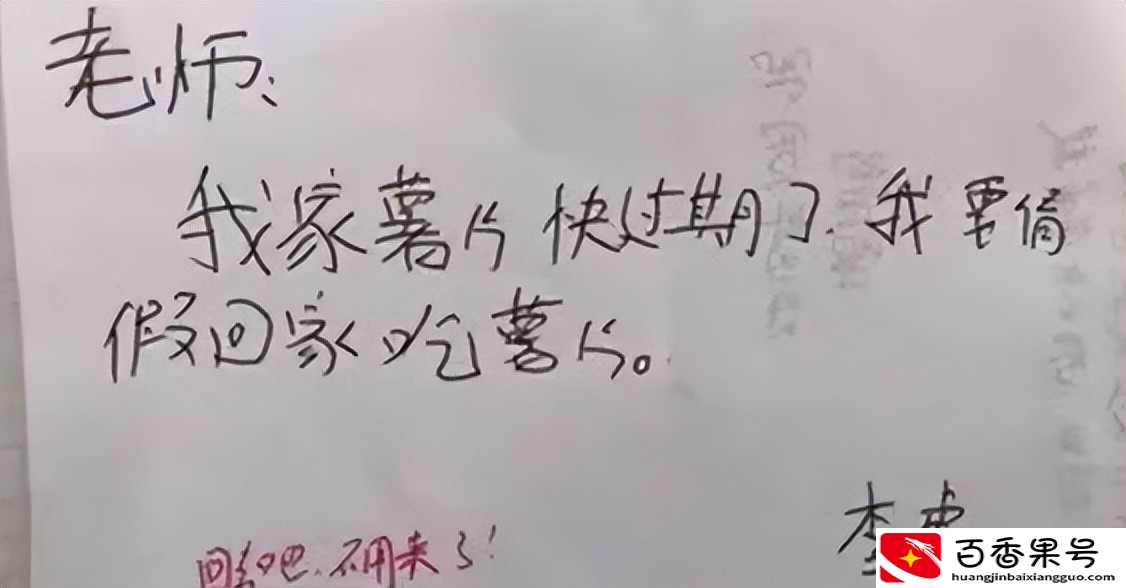 老师:
我家薯片快过期了.我要请
假回家吃薯片。
回去吧.不用来了!
李
百香果号
huangjinbaixiangguo.com